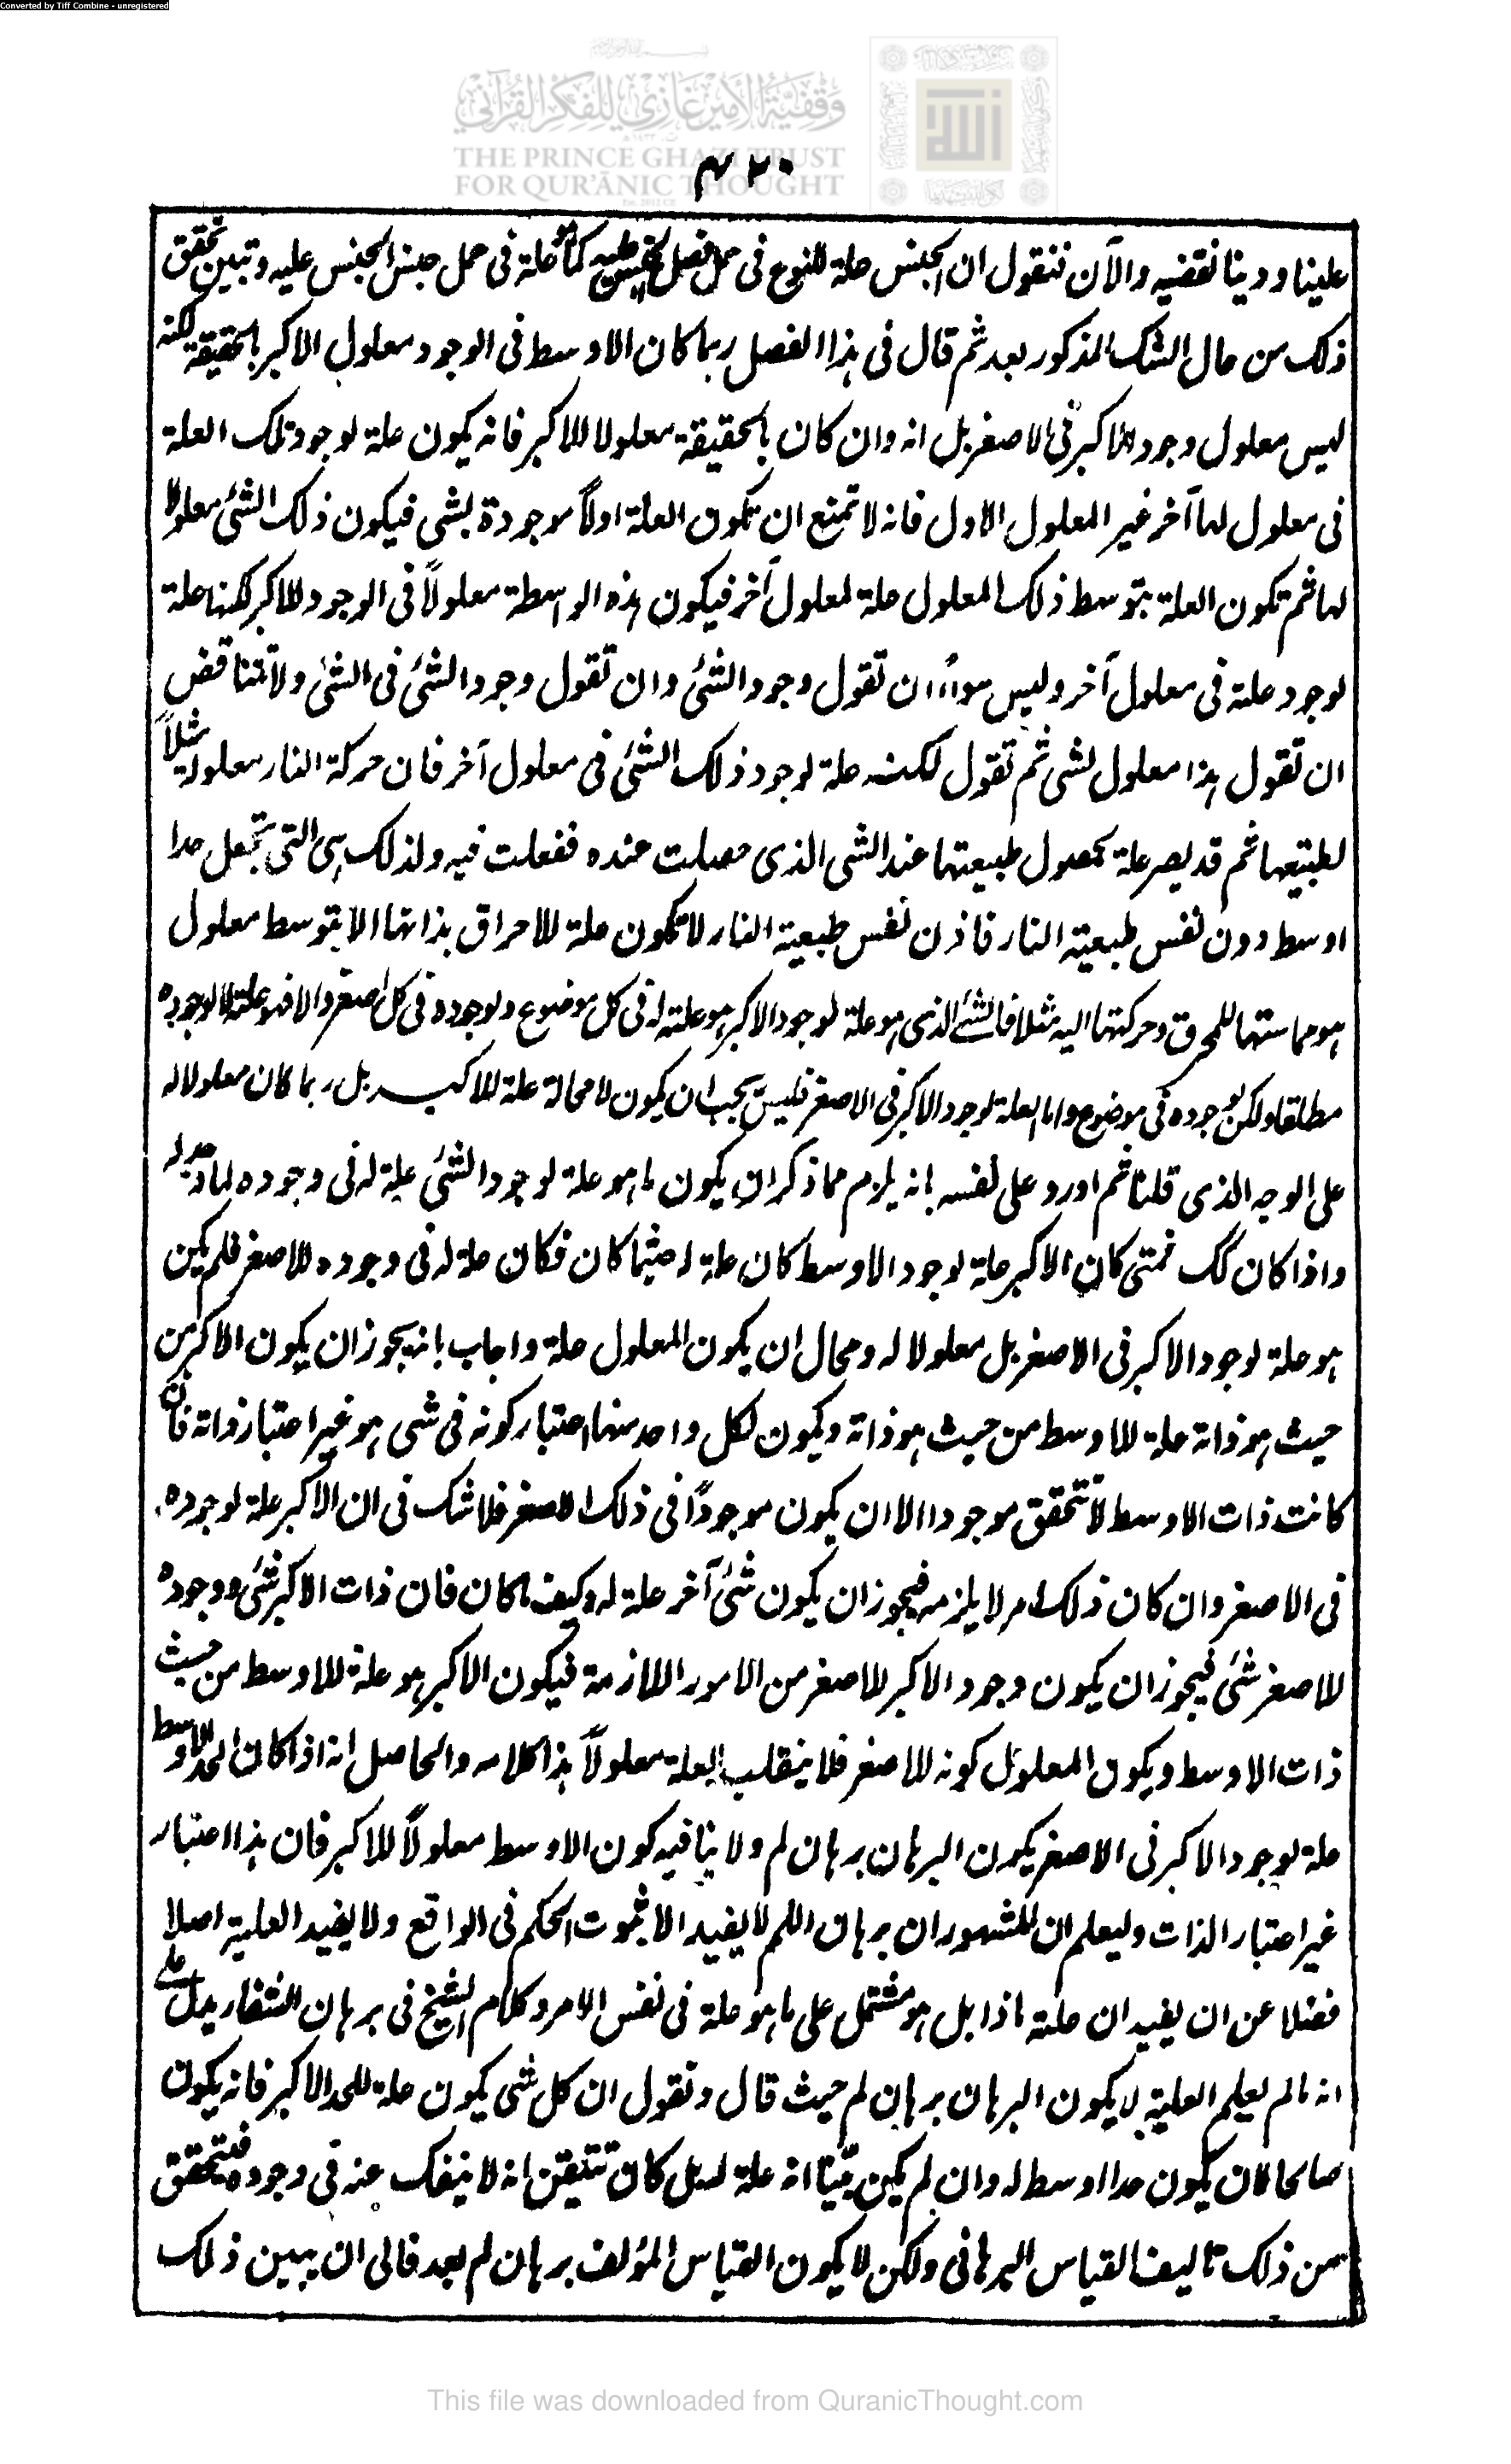 Converted by Tiff Combine - unregistered
وقفية الأمير غازي للفكر القرآني
THE PRINCE GHAZI TRUST
FOR QUR'ĀNIC THOUGHT
٤٢٠
علينا ودينا نقضيه والآن فنقول ان الجنس علة للنوع فى حمل فصل الجنس عليه كما هو علة فى حمل جنس الجنس عليه وتبين تحقق
ذلك من حال الشك المذكور بعد ثم قال فى هذا الفصل ربما كان الاوسط فى الوجود معلول الاكبر بالحقيقة لكنه
ليس معلول وجود الاكبر فى الاصغر بل انه وان كان بالحقيقة معلولا للاكبر فانه يكون علة لوجود تلك العلة
فى معلول لها آخر غير المعلول الاول فانه لا تمنع ان تكون العلة اولاً موجودة لشى فيكون ذلك الشئ معلولا
لها ثم تكون العلة بتوسط ذلك المعلول علة لمعلول آخر فيكون هذه الواسطة معلولاً فى الوجود للاكبر لكنها علة
لوجود علة فى معلول آخر وليس سواءً ان تقول وجود الشئ وان تقول وجود الشئ فى الشئ ولا تتناقض
ان تقول هذا معلول لشى ثم تقول لكنه علة لوجود ذلك الشئ فى معلول آخر فان حركة النار معلولة مثلاً
لطبيعتها ثم قد يصير علة لحصول طبيعتها عند الشى الذى حصلت عنده ففعلت فيه ولذلك هى التى تجعل حدا
اوسط دون نفس طبيعة النار فاذن نفس طبيعة النار لا تكون علة للاحراق بذاتها الا بتوسط معلول
هو مماستها للمحرق وحركتها اليه مثلا فالشئ الذى هو علة لوجود الاكبر هو علته له فى كل موضوع ولوجوده فى كل اصغر والا فهو علة لا لوجوده
مطلقا ولكن لوجوده فى موضوع واما العلة لوجود الاكبر فى الاصغر فليس يجب ان يكون لا محالة علة للاكبر بل ربما كان معلولا له
على الوجه الذى قلنا ثم اورد على نفسه بانه يلزم مما ذكر ان يكون ما هو علة لوجود الشئ علة له فى وجوده لما وجد له
واذا كان كك فمتى كان الاكبر علة لوجود الاوسط كان علة له حيثما كان فكان علة له فى وجوده للاصغر فلم يكن
هو علة لوجود الاكبر فى الاصغر بل معلولا له ومحال ان يكون المعلول علة واجاب بانه يجوز ان يكون الاكبر من
حيث هو ذاته علة للاوسط من حيث هو ذاته ويكون لكل واحد منهما اعتبار كونه فى شى هو غير اعتبار ذاته فان
كانت ذات الاوسط لا تتحقق موجودا الا ان يكون موجوداً فى ذلك الاصغر فلا شك فى ان الاكبر علة لوجوده
فى الاصغر وان كان ذلك امر لا يلزمه فيجوز ان يكون شئ آخر علة له وكيف ما كان فان ذات الاكبر شئ ووجوده
للاصغر شئ فيجوز ان يكون وجود الاكبر للاصغر من الامور اللازمة فيكون الاكبر هو علة للاوسط من حيث
ذات الاوسط ويكون المعلول كونه للاصغر فلا ينقلب العلة معلولاً هذا كلامه والحاصل انه اذا كان الحد الاوسط
علة لوجود الاكبر فى الاصغر يكون البرهان برهان لم ولا ينافيه كون الاوسط معلولاً للاكبر فان هذا اعتبار
غير اعتبار الذات وليعلم ان المشهور ان برهان اللم لا يفيد الا ثبوت الحكم فى الواقع ولا يفيد العلية اصلا
فضلا عن ان يفيد ان علته ماذا بل هو مشتمل على ما هو علة فى نفس الامر وكلام الشيخ فى برهان الشفا يدل على
انه مالم يعلم العلية لا يكون البرهان برهان لم حيث قال ونقول ان كل شى يكون علة للحد الاكبر فانه يكون
صالحا لان يكون حدا اوسط له وان لم يكن بيّنا انه علة له بل كان تتيقن انه لا ينفك عنه فى وجوده فيتحقق
من ذلك تاليف القياس البرهانى ولكن لا يكون القياس المؤلف برهان لم بعد فالى ان يبين ذلك
This file was downloaded from QuranicThought.com